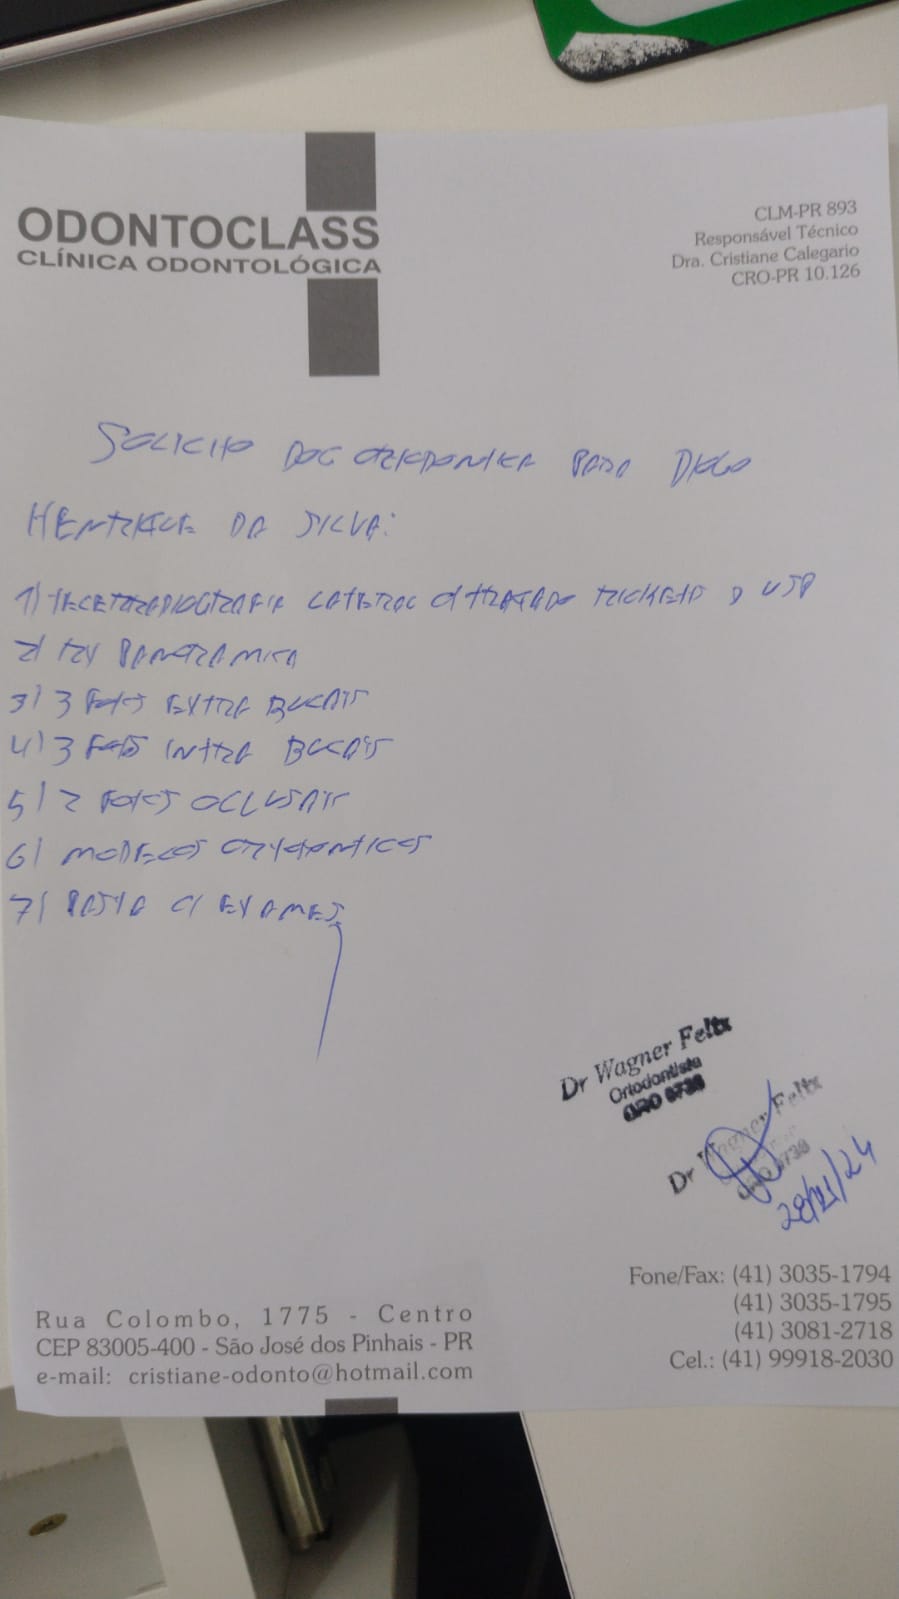 ODONTOCLASS
CLÍNICA ODONTOLÓGICA
CLM-PR 893
Responsável Técnico
Dra. Cristiane Calegario
CRO-PR 10.126
SOLICITO DOC ORTODONTICA PARA DIOGO
HENRIQUE DA SILVA:
1) TELERRADIOGRAFIA LATERAL C/ TRAÇADO RICKETS E USP
2) RX PANORAMICA
3) 3 FOTOS EXTRA BUCAIS
4) 3 FOTOS INTRA BUCAIS
5) 2 FOTOS OCLUSAIS
6) MODELOS ORTODONTICOS
7) PASTA C/ EXAMES
Dr Wagner Felix
Ortodontista
CRO 8738
Dr Wagner Felix
Fone/Fax: (41) 3035-1794
(41) 3035-1795
(41) 3081-2718
Cel.: (41) 99918-2030
Rua Colombo, 1775 - Centro
CEP 83005-400 - São José dos Pinhais - PR
e-mail: cristiane-odonto@hotmail.com